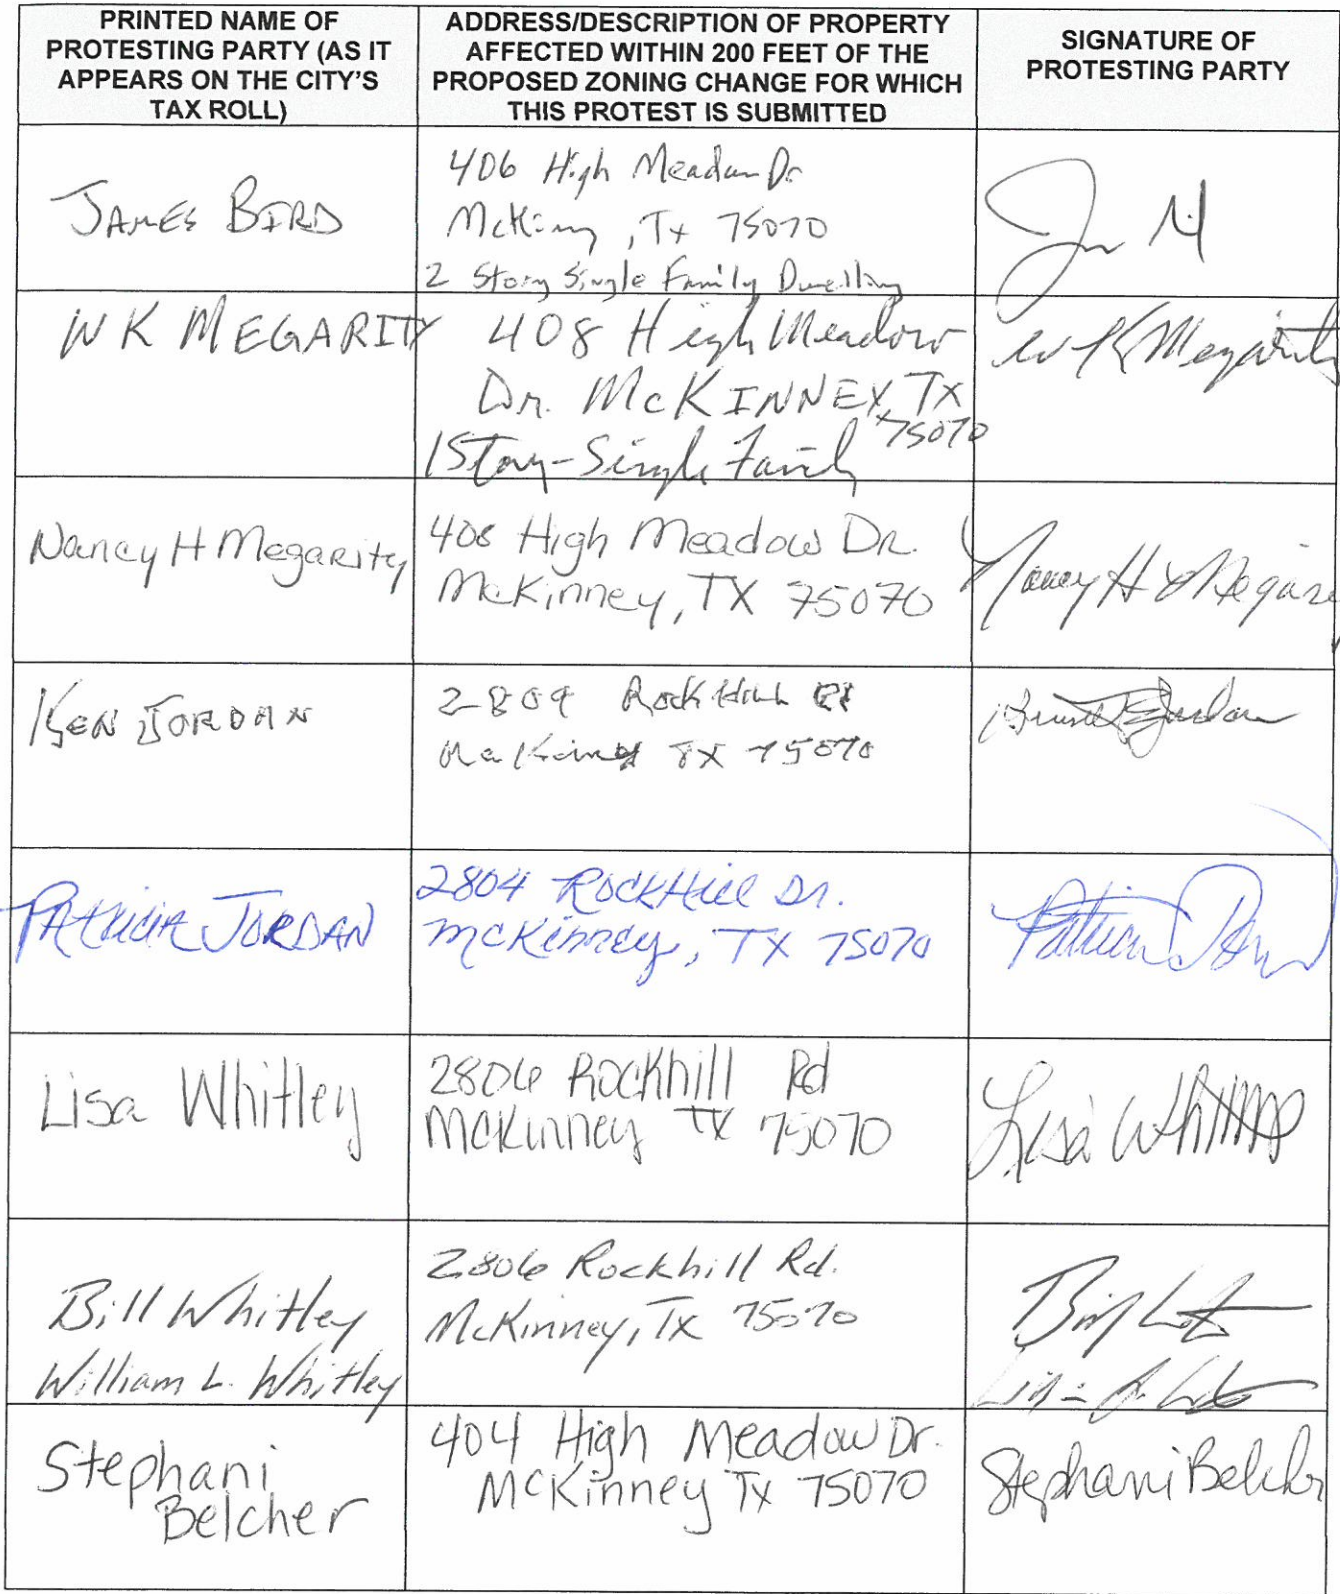 PRINTED NAME OF
PROTESTING PARTY (AS IT
APPEARS ON THE CITY'S
TAX ROLL)
ADDRESS/DESCRIPTION OF PROPERTY
AFFECTED WITHIN 200 FEET OF THE
PROPOSED ZONING CHANGE FOR WHICH
THIS PROTEST IS SUBMITTED
SIGNATURE OF
PROTESTING PARTY
JAMES BIRD
406 High Meadow Dr
McKinney, Tx 75070
2 Story Single Family Dwelling
W K MEGARITY
408 High Meadow
Dr. McKINNEY, TX
75070
1 Story-Single Family
W K Megarity
Nancy H Megarity
408 High Meadow Dr.
McKinney, TX 75070
Nancy H Megarity
KEN JORDAN
2804 Rock Hill
McKinney TX 75070
PATRICIA JORDAN
2804 RockHill Dr.
McKinney, TX 75070
Patricia Jordan
Lisa Whitley
2806 Rockhill Rd
McKinney TX 75070
Lisa Whitley
Bill Whitley
William L. Whitley
2806 Rockhill Rd.
McKinney, Tx 75070
Stephani
Belcher
404 High Meadow Dr.
McKinney Tx 75070
Stephani Belcher